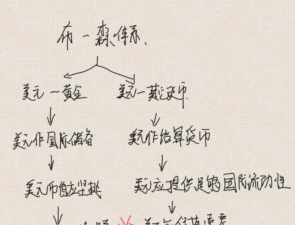 布一森体系
美元一黄金 美元一其它货币
美元作国际储备 美元作结算货币
美元币值应坚挺 美元应提供足够国际流动性